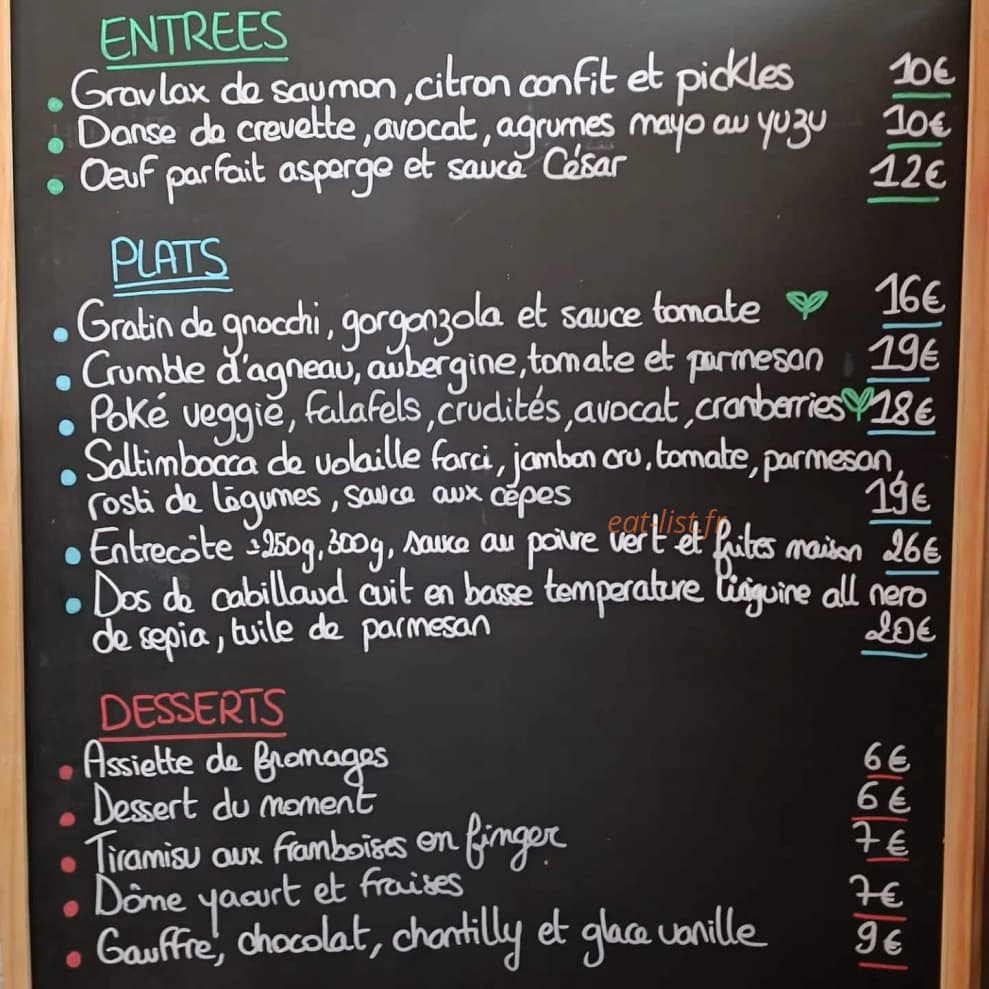 ENTREES
Gravlax de saumon, citron confit et pickles 10€
Danse de crevette, avocat, agrumes mayo au yuzu 10€
Oeuf parfait asperge et sauce César 12€
PLATS
Gratin de gnocchi, gorgonzola et sauce tomate 16€
Crumble d'agneau, aubergine, tomate et parmesan 19€
Poké veggie, falafels, crudités, avocat, cranberries 18€
Saltimbocca de volaille farci, jambon cru, tomate, parmesan,
rosti de légumes, sauce aux cèpes 19€
eat-list.fr
Entrecôte ±250g, 300g, sauce au poivre vert et frites maison 26€
Dos de cabillaud cuit en basse temperature linguine all nero
de sepia, tuile de parmesan 20€
DESSERTS
Assiette de fromages 6€
Dessert du moment 6€
Tiramisu aux framboises en finger 7€
Dôme yaourt et fraises 7€
Gauffre, chocolat, chantilly et glace vanille 9€